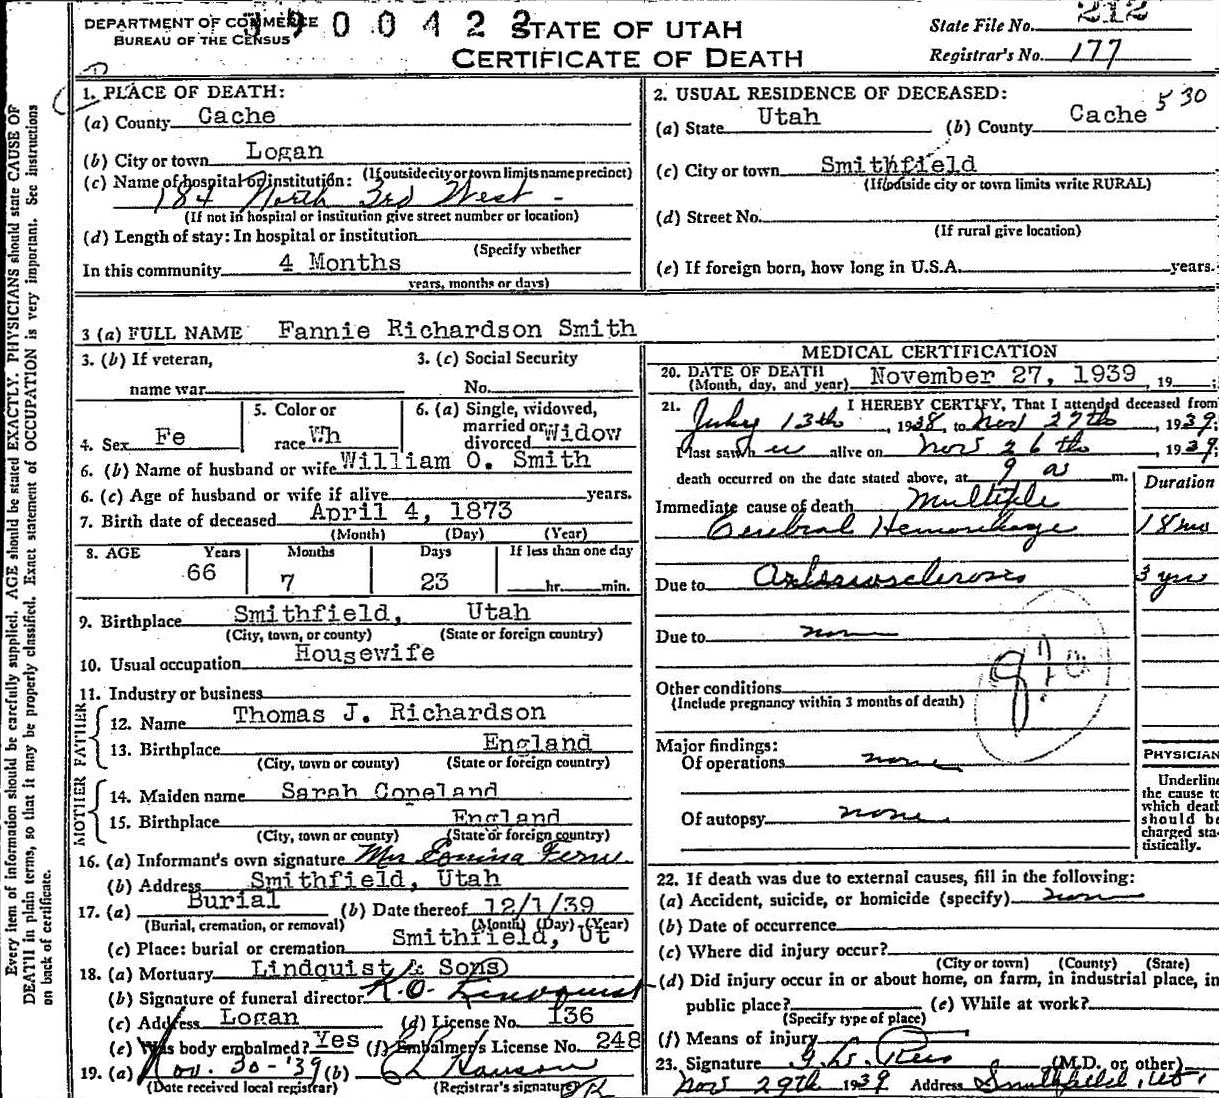 DEPARTMENT OF COMMERCE
BUREAU OF THE CENSUS
3900422
STATE OF UTAH
CERTIFICATE OF DEATH
State File No. 212
Registrar's No. 177
1. PLACE OF DEATH:
(a) County Cache
(b) City or town Logan
(If outside city or town limits name precinct)
(c) Name of hospital or institution:
184 North 3rd West -
(If not in hospital or institution give street number or location)
(d) Length of stay: In hospital or institution
(Specify whether
In this community 4 Months
years, months or days)
2. USUAL RESIDENCE OF DECEASED:
(a) State Utah (b) County Cache 530
(c) City or town Smithfield
(If outside city or town limits write RURAL)
(d) Street No.
(If rural give location)
(e) If foreign born, how long in U.S.A. years.
3 (a) FULL NAME Fannie Richardson Smith
3. (b) If veteran,
name war
3. (c) Social Security
No.
4. Sex Fe
5. Color or
race Wh
6. (a) Single, widowed,
married or
divorced Widow
6. (b) Name of husband or wife William O. Smith
6. (c) Age of husband or wife if alive years.
7. Birth date of deceased April 4, 1873
(Month) (Day) (Year)
8. AGE Years Months Days If less than one day
66 7 23 hr. min.
9. Birthplace Smithfield, Utah
(City, town, or county) (State or foreign country)
10. Usual occupation Housewife
11. Industry or business
FATHER
12. Name Thomas J. Richardson
13. Birthplace England
(City, town or county) (State or foreign country)
MOTHER
14. Maiden name Sarah Copeland
15. Birthplace England
(City, town or county) (State or foreign country)
16. (a) Informant's own signature Mrs
(b) Address Smithfield, Utah
17. (a) Burial (b) Date thereof 12/1/39
(Burial, cremation, or removal) (Month) (Day) (Year)
(c) Place: burial or cremation Smithfield, Ut
18. (a) Mortuary Lindquist & Sons
(b) Signature of funeral director R. O. Lindquist
(c) Address Logan (d) License No. 136
(e) Was body embalmed? Yes (f) Embalmer's License No. 248
19. (a) Nov. 30-'39 (b)
(Date received local registrar) (Registrar's signature)
MEDICAL CERTIFICATION
20. DATE OF DEATH
(Month, day, and year) November 27, 1939, 19
21. I HEREBY CERTIFY, That I attended deceased from
July 13th, 1938, to Nov 27th, 1939;
I last saw h alive on Nov 26th, 1939;
death occurred on the date stated above, at 9 a m.
Duration
Immediate cause of death Multiple
Cerebral Hemorrhage 18 mo
Due to Arteriosclerosis 3 yrs
Due to none
Other conditions
(Include pregnancy within 3 months of death)
Major findings:
Of operations none
Of autopsy none
PHYSICIAN
Underline
the cause to
which death
should be
charged sta-
tistically.
22. If death was due to external causes, fill in the following:
(a) Accident, suicide, or homicide (specify) none
(b) Date of occurrence
(c) Where did injury occur?
(City or town) (County) (State)
(d) Did injury occur in or about home, on farm, in industrial place, in
public place? (e) While at work?
(Specify type of place)
(f) Means of injury
23. Signature (M.D. or other)
Nov 29th 1939 Address Smithfield, Ut.
Every item of information should be carefully supplied. AGE should be stated EXACTLY. PHYSICIANS should state CAUSE OF
DEATH in plain terms, so that it may be properly classified. Exact statement of OCCUPATION is very important. See instructions
on back of certificate.